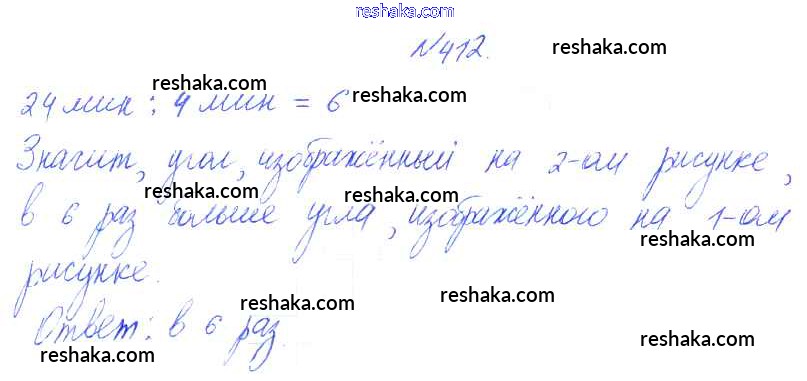 reshaka.com
№412. reshaka.com
reshaka.com reshaka.com
24 мин : 4 мин = 6
Значит, угол, изображённый на 2-ом рисунке,
reshaka.com reshaka.com
в 6 раз больше угла, изображённого на 1-ом
reshaka.com
рисунке.
reshaka.com reshaka.com
Ответ: в 6 раз
reshaka.com reshaka.com